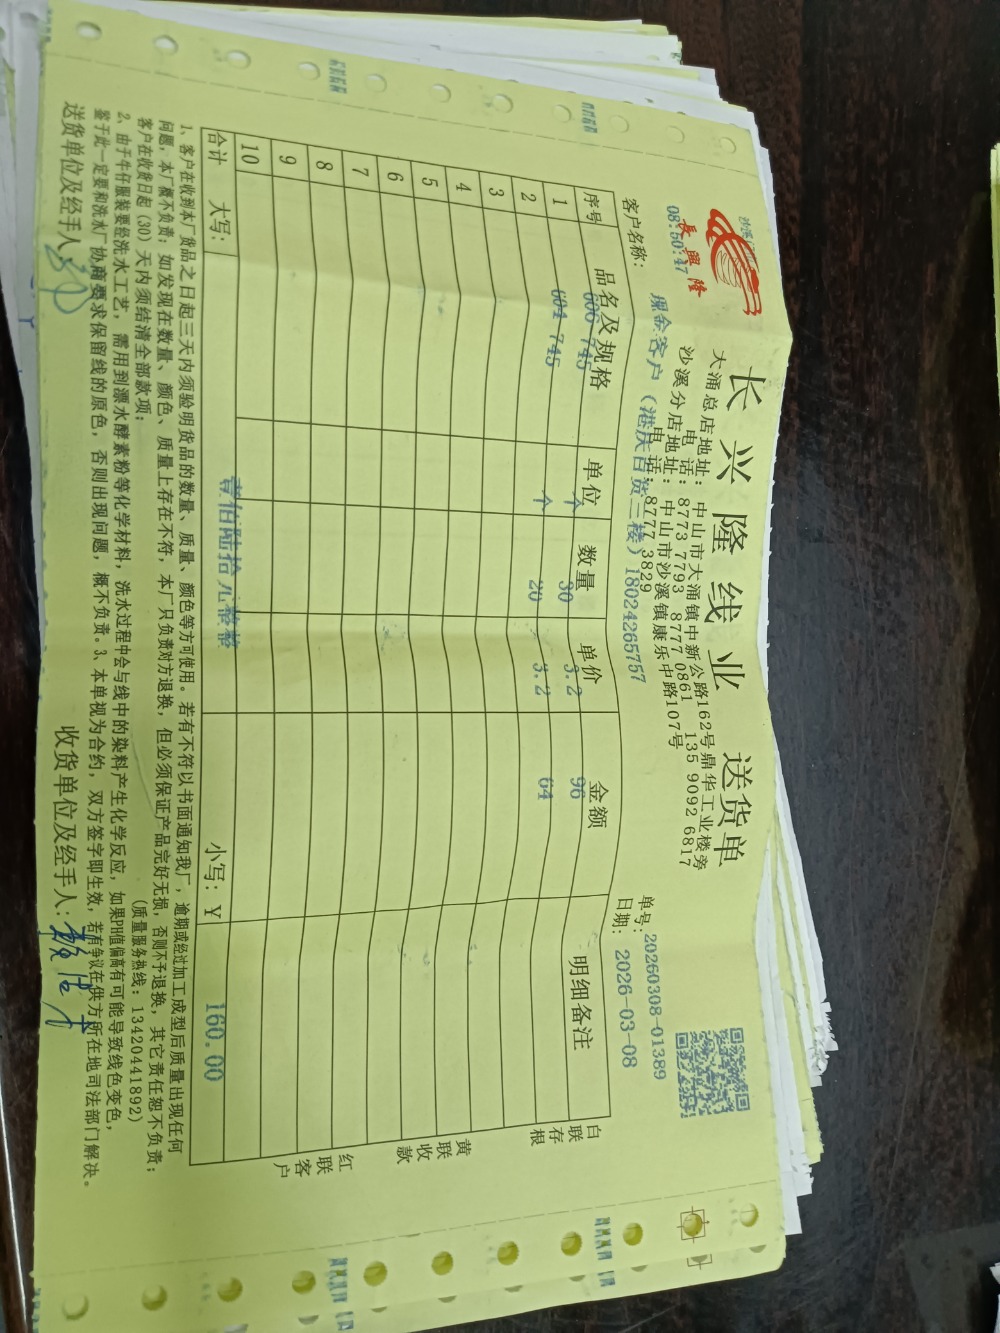 長興隆
08:50:47
长兴隆线业 送货单
大涌总店地址: 中山市大涌镇中新公路162号鼎华工业楼旁
电 话: 8773 7793 8777 0861 135 9092 6817
沙溪分店地址: 中山市沙溪镇康乐中路107号
电 话: 8777 3829
单号: 20260308-01389
客户名称: 现金客户(港庆百货三楼)18024265757
日期: 2026-03-08
序号 品名及规格 单位 数量 单价 金额 明细备注
1 606 745 个 30 3.2 96
2 604 745 个 20 3.2 64
3
4
5
6
7
8
9
10
合计 大写: 壹佰陆拾元整 小写: ¥ 160.00
白联存根
黄联收款
红联客户
1、客户在收到本厂货品之日起三天内须验明货品的数量、质量、颜色等方可使用。若有不符以书面通知我厂,逾期或经过加工成型后质量出现任何
问题,本厂概不负责;如发现在数量、颜色、质量上存在不符,本厂只负责对方退换,但必须保证产品完好无损,否则不予退换,其它责任恕不负责;
客户在收货日起(30)天内须结清全部款项; (质量服务热线:13420441892)
2、由于牛仔服装要经洗水工艺,需用到漂水酵素粉等化学材料,洗水过程中会与线中的染料产生化学反应,如果PH值偏高有可能导致线色变色,
鉴于此一定要和洗水厂协商要求保留线的原色,否则出现问题,概不负责。3、本单视为合约,双方签字即生效,若有争议在供方所在地司法部门解决。
送货单位及经手人: 收货单位及经手人: